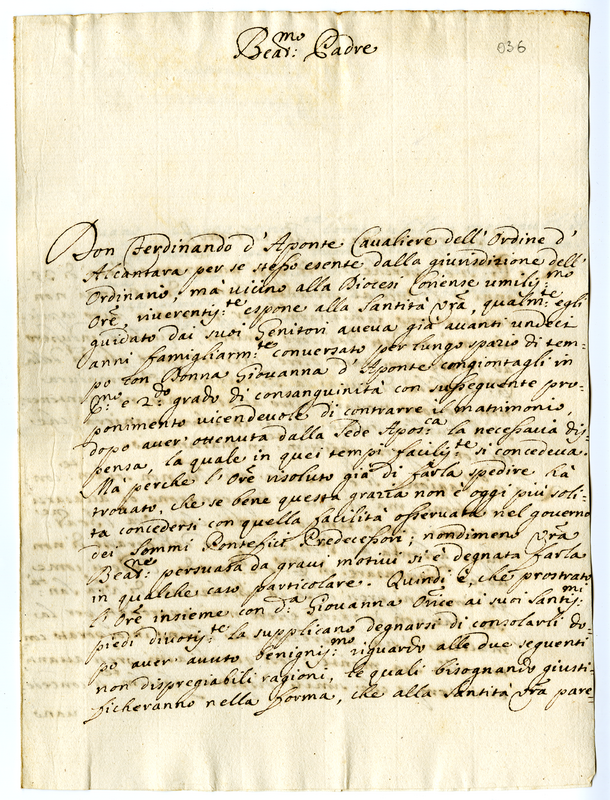 Beat:mo Padre
036
Don Ferdinando d'Aponte Cavaliere dell'Ordine d'
Alcantara per se stesso esente dalla giurisdizione dell'
Ordinario, mà vicino alla Diocesi umiliss:mo
Orẽ, riverentiss:te espone alla Santità Vrã, qualm:te egli
guidato dai suoi Genitori aveva già avanti undeci
anni famigliarm:te conversato per lungo spazio di tem-
po con Donna Giovanna d'Aponte congiontagli in
P:mo e 2:do grado di consanguinità con susseguente pro-
ponimento vicendevole di contrarre il matrimonio,
dopo aver ottenuta dalla Sede Apos:ca la necessaria dis-
pensa, la quale in quei tempi faciliss:te si concedeva.
Mà perche l'Orẽ risoluto già di farla spedire hà
trovato, che se bene questa grazia non è oggi più soli-
ta concedersi con quella facilità osservata nel governo
dei Sommi Pontefici Predecessori; nondimeno Vrã
Beat:ne persuasa da gravi motivi si è degnata farla
in qualche caso particolare. Quindi è, che prostrato
l'Orẽ insieme con d:a Giovanna Orice ai suoi Santiss:mi
piedi divotiss:te la supplicano degnarsi di consolarli do-
po aver avuto benigniss:mo riguardo alle due seguenti
non dispregiabili ragioni, le quali bisognando giusti-
ficheranno nella forma, che alla Santità Vrã pare-